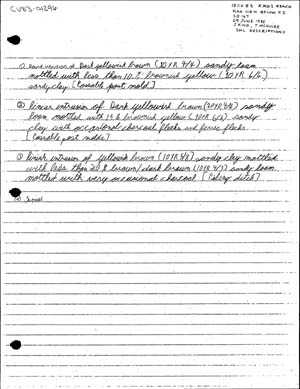 CV83-01296
18CV83 KINGS REACH
PLAN VIEW BELOW P.Z.
29 JUNE 1985
SOIL DESCRIPTIONS
① intrusion of Dark yellowish brown (10YR 4/4) sandy loam
mottled with less than 10% brownish yellow (10YR 6/6)
sandy clay [Possible post mold]
② linear intrusion of Dark yellowish brown (10YR 4/4) sandy
loam mottled with 15% brownish yellow (10YR 6/6) sandy
clay with occasional charcoal flecks and flecks.
[Possible post molds]
③ linear intrusion of yellowish brown (10YR 5/8) sandy clay mottled
with less than 20% brown/dark brown (10YR 4/3) sandy loam
mottled with very occasional charcoal [ ditch]
④